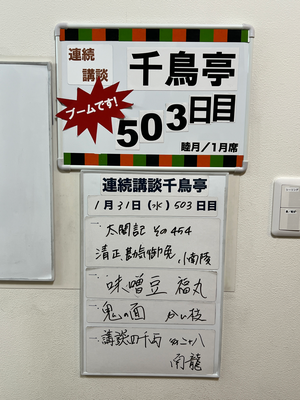 連続
講談
千鳥亭
ブームです!
503日目
睦月／1月席
連続講談千鳥亭
1月31日(水)503日目
一、太閤記 その454
清正、勘気御免 小南陵
一、味噌豆 福丸
一、鬼の面
一、講談四千両 その二十八
南龍